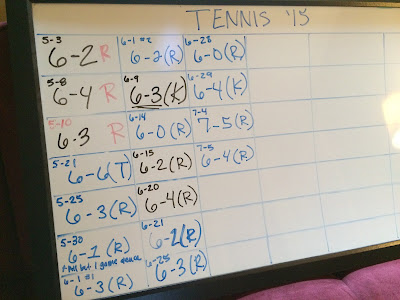 TENNIS '15
5-3
6-2 R
5-8
6-4 R
5-10
6-3 R
5-21
6-6 (T)
5-25
6-3 (R)
5-30
6-1 (R)
6-1 #1
6-3 (R)
6-1 #2
6-2 (R)
6-9
6-3 (K)
6-14
6-0 (R)
6-15
6-2 (R)
6-20
6-4 (R)
6-21
6-2 (R)
6-25
6-3 (R)
6-28
6-0 (R)
6-29
6-4 (K)
7-4
7-5 (R)
7-5
6-4 (R)